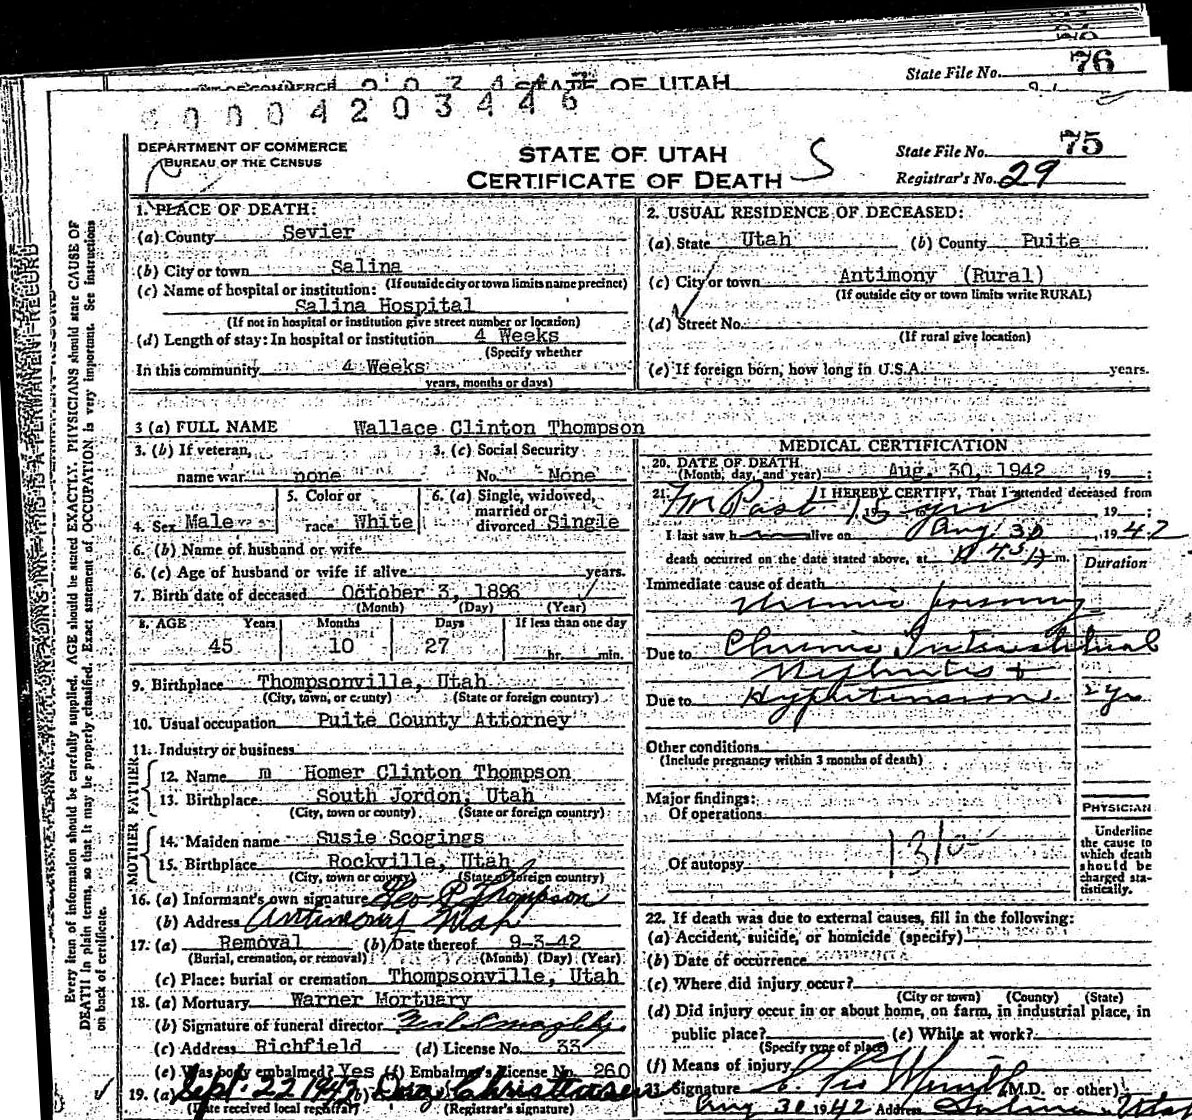 STATE OF UTAH
State File No. 76
0 0 0 4 2 0 3 4 4 6
DEPARTMENT OF COMMERCE
BUREAU OF THE CENSUS
STATE OF UTAH
CERTIFICATE OF DEATH
S
State File No. 75
Registrar's No. 29
1. PLACE OF DEATH:
(a) County Sevier
(b) City or town Salina
(If outside city or town limits name precinct)
(c) Name of hospital or institution:
Salina Hospital
(If not in hospital or institution give street number or location)
(d) Length of stay: In hospital or institution 4 Weeks
(Specify whether
In this community 4 Weeks
years, months or days)
2. USUAL RESIDENCE OF DECEASED:
(a) State Utah (b) County Puite
(c) City or town Antimony (Rural)
(If outside city or town limits write RURAL)
(d) Street No.
(If rural give location)
(e) If foreign born, how long in U.S.A. years.
3 (a) FULL NAME Wallace Clinton Thompson
3. (b) If veteran, name war none
3. (c) Social Security No. None
4. Sex Male
5. Color or race White
6. (a) Single, widowed, married or divorced Single
6. (b) Name of husband or wife
6. (c) Age of husband or wife if alive years.
7. Birth date of deceased October 3, 1896
(Month) (Day) (Year)
8. AGE Years Months Days If less than one day
45 10 27 hr. min.
9. Birthplace Thompsonville, Utah
(City, town, or county) (State or foreign country)
10. Usual occupation Puite County Attorney
11. Industry or business
FATHER
12. Name m Homer Clinton Thompson
13. Birthplace South Jordon, Utah
(City, town or county) (State or foreign country)
MOTHER
14. Maiden name Susie Scogings
15. Birthplace Rockville, Utah
(City, town or county) (State or foreign country)
16. (a) Informant's own signature Geo P Thompson
(b) Address Antimony Utah
17. (a) Removal (b) Date thereof 9-3-42
(Burial, cremation, or removal) (Month) (Day) (Year)
(c) Place: burial or cremation Thompsonville, Utah
18. (a) Mortuary Warner Mortuary
(b) Signature of funeral director
(c) Address Richfield (d) License No. 33
(e) Was body embalmed? Yes (f) Embalmer's License No. 260
19. (a) Sept. 22 1942 (b) Christensen
(Date received local registrar) (Registrar's signature)
MEDICAL CERTIFICATION
20. DATE OF DEATH
(Month, day, and year) Aug. 30, 1942 , 19 ;
21. I HEREBY CERTIFY, That I attended deceased from
For Past 15 yrs , 19 ;
I last saw h alive on Aug 30 , 1942
death occurred on the date stated above, at m.
Duration
Immediate cause of death
Uremic Poisoning
Due to Chronic Interstitial
Nephritis +
Due to Hypertension 2 yrs
Other conditions
(Include pregnancy within 3 months of death)
Major findings:
Of operations
131a
Of autopsy
PHYSICIAN
Underline
the cause to
which death
should be
charged sta-
tistically.
22. If death was due to external causes, fill in the following:
(a) Accident, suicide, or homicide (specify)
(b) Date of occurrence
(c) Where did injury occur?
(City or town) (County) (State)
(d) Did injury occur in or about home, on farm, in industrial place, in
public place? (e) While at work?
(Specify type of place)
(f) Means of injury
23. Signature (M.D. or other)
Aug 31 1942 Address Salina Utah
Every item of information should be carefully supplied. AGE should be stated EXACTLY. PHYSICIANS should state CAUSE OF
DEATH in plain terms, so that it may be properly classified. Exact statement of OCCUPATION is very important. See instructions
on back of certificate.